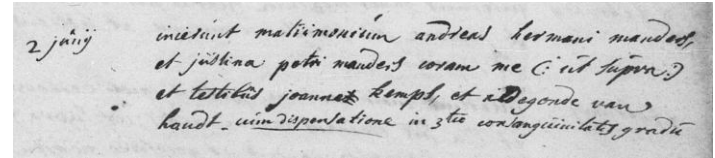 2 junij inierunt matrimonium andreas hermani manders,
et justina petri manders coram me (: ut supra :)
et testibus joanne kemps, et aldegonde van
handt - cum dispensatione in 3tio consanguinitatis gradu